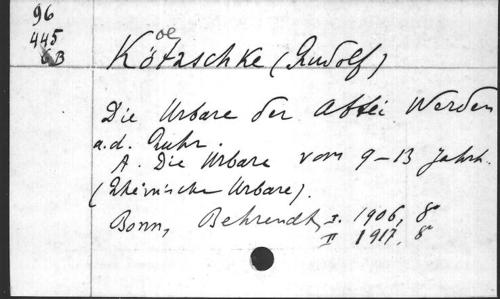 96
445
6B
oe
Kötzschke (Rudolf)
Die Urbare der Abtei Werden
a.d. Ruhr.
A. Die Urbare vom 9-13 Jahrh.
(Rheinische Urbare).
Bonn, Behrendt, I. 1906, 8°
II 1917, 8°